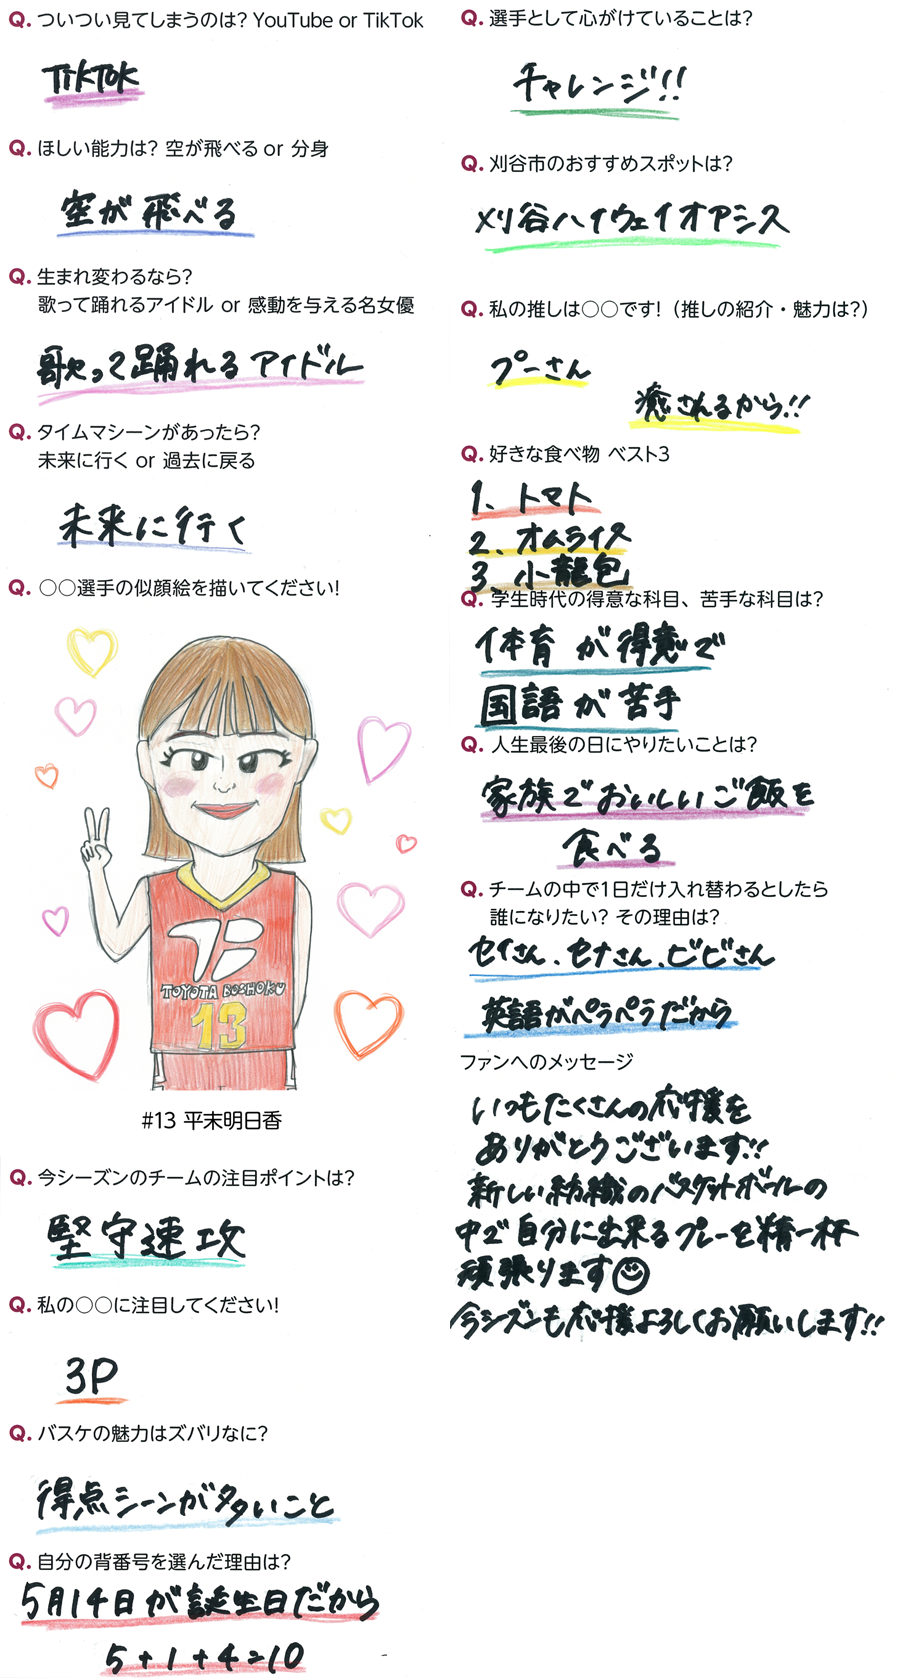 Q. ついつい見てしまうのは? YouTube or TikTok
TikTok
Q. ほしい能力は? 空が飛べる or 分身
空が飛べる
Q. 生まれ変わるなら?
歌って踊れるアイドル or 感動を与える名女優
歌って踊れるアイドル
Q. タイムマシーンがあったら?
未来に行く or 過去に戻る
未来に行く
Q. 〇〇選手の似顔絵を描いてください!
TB
TOYOTA BOSHOKU
13
#13 平末明日香
Q. 今シーズンのチームの注目ポイントは?
堅守速攻
Q. 私の〇〇に注目してください!
3P
Q. バスケの魅力はズバリなに?
得点シーンが多いこと
Q. 自分の背番号を選んだ理由は?
5月14日が誕生日だから
5+1+4=10
Q. 選手として心がけていることは?
チャレンジ!!
Q. 刈谷市のおすすめスポットは?
刈谷ハイウェイオアシス
Q. 私の推しは〇〇です!（推しの紹介・魅力は?）
プーさん
癒されるから!!
Q. 好きな食べ物 ベスト3
1、トマト
2、オムライス
3、小龍包
Q. 学生時代の得意な科目、苦手な科目は?
体育が得意で
国語が苦手
Q. 人生最後の日にやりたいことは?
家族でおいしいご飯を
食べる
Q. チームの中で1日だけ入れ替わるとしたら
誰になりたい? その理由は?
セイさん、セナさん、ビビさん
英語がペラペラだから
ファンへのメッセージ
いつもたくさんの応援を
ありがとうございます!!
新しい紡織のバスケットボールの
中で自分に出来るプレーを精一杯
頑張ります
今シーズンも応援よろしくお願いします!!